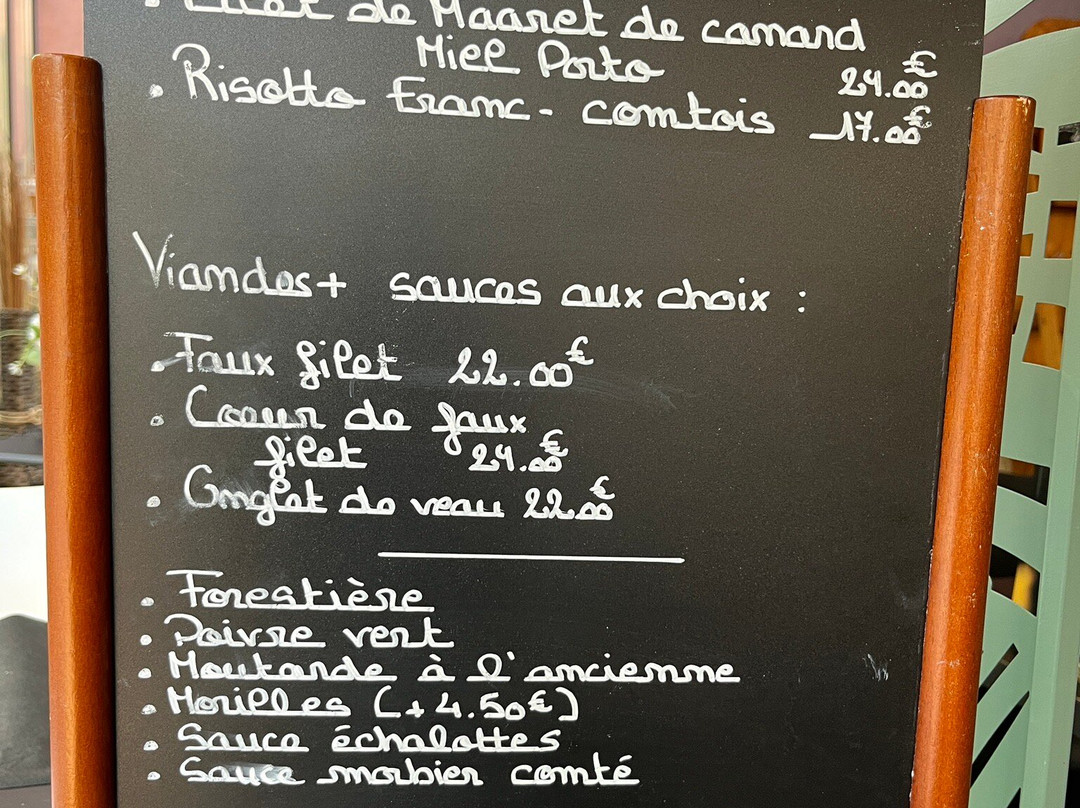 de Magret de canard
Miel Porto 24.00€
. Risotto Franc-comtois 17.00€
Viandes + sauces aux choix :
. Faux filet 22.00€
. Coeur de faux
filet 24.00€
. Onglet de veau 22.00€
. Forestière
. Poivre vert
. Moutarde à l'ancienne
. Morilles (+4.50€)
. Sauce échalottes
. Sauce morbier comté